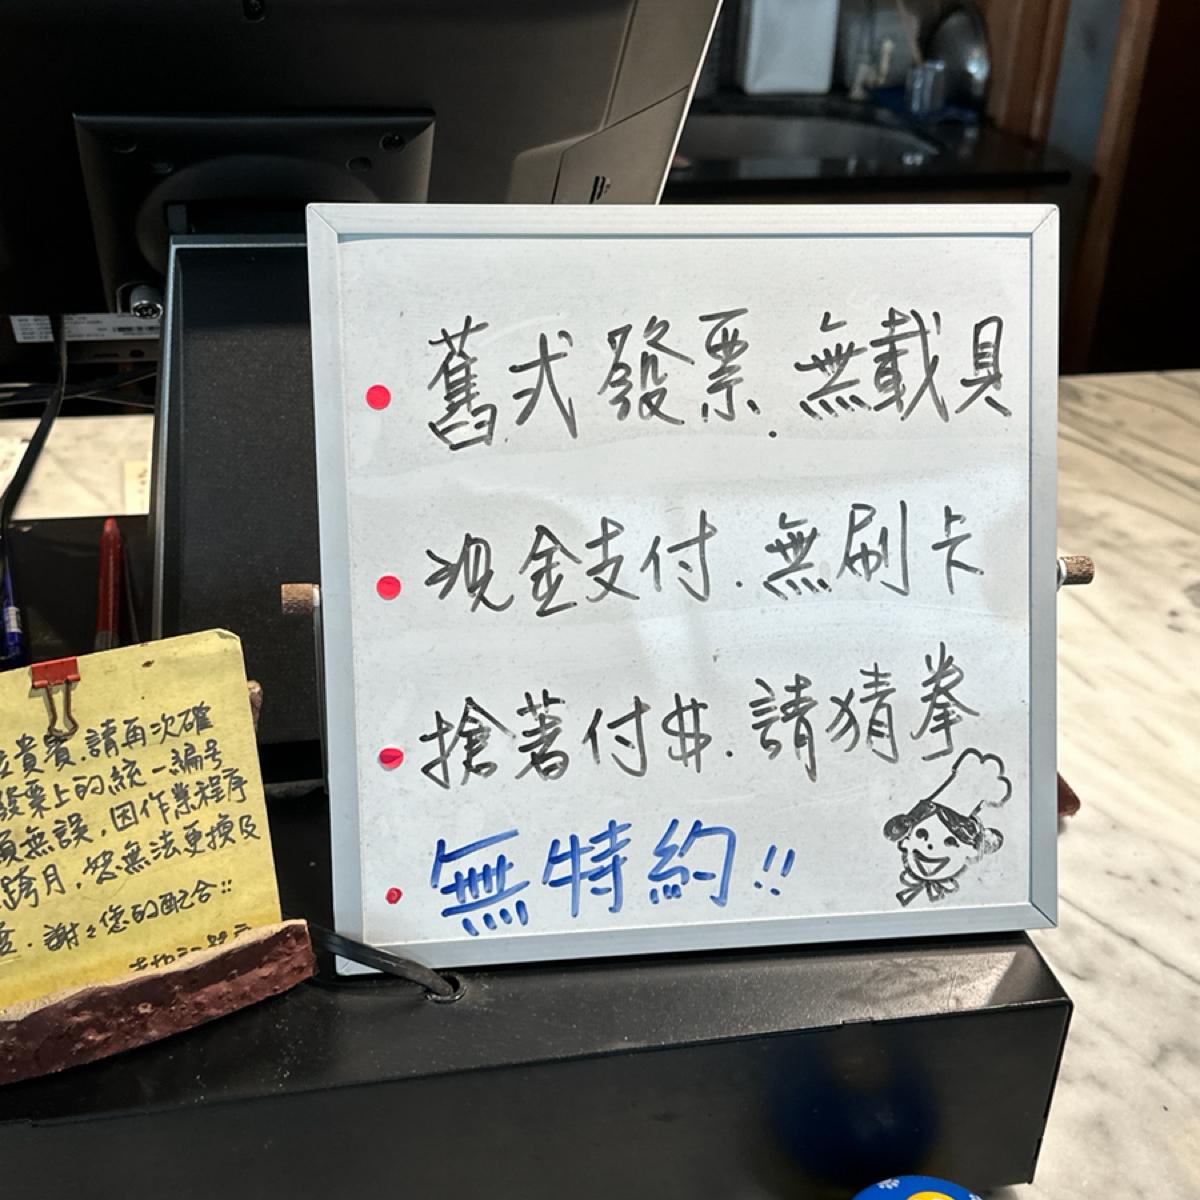 舊式發票.無載具
現金支付.無刷卡
搶著付$.請猜拳
無特約!!
貴賓.請再次確
發票上的統一編号
無誤,因作業程序
跨月,恕無法更換及
.謝々您的配合!!